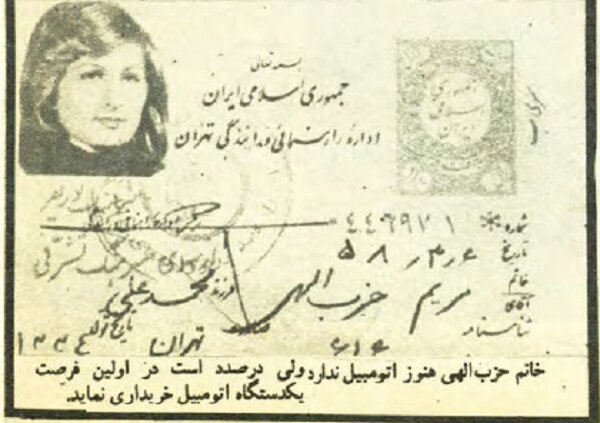 بسمه تعالی
جمهوری اسلامی ایران
اداره راهنمائی و رانندگی تهران
جمهوری اسلامی ایران
شماره * ۴۴۶۹۷۱
تاریخ ۵۸٫۳٫۶
خانم
آقای
مریم حزب الهی فرزند محمد علی
شناسنامه ۶۱۶ صادره تهران تاریخ تولد ۱۳۳۴
خانم حزب‌الهی هنوز اتومبیل ندارد ولی درصدد است در اولین فرصت
یکدستگاه اتومبیل خریداری نماید.